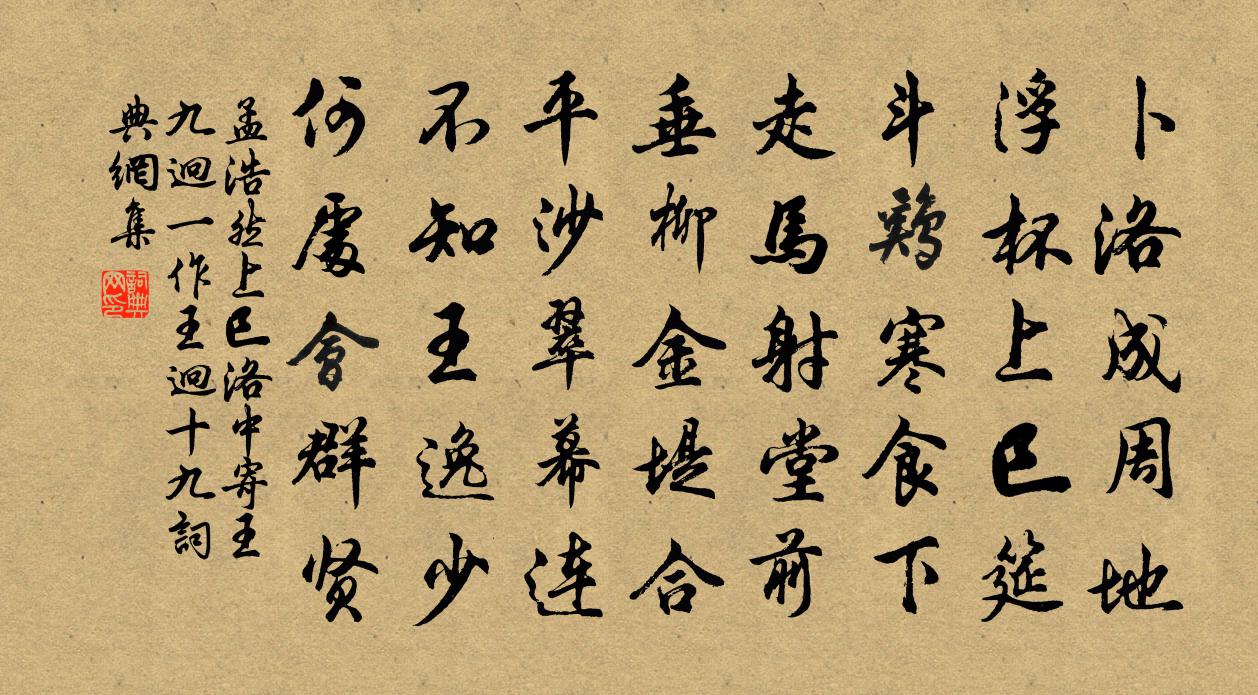 卜洛成周地
浮杯上巳筵
斗鷄寒食下
走馬射堂前
垂柳金堤合
平沙翠幕連
不知王逸少
何處會群贤
孟浩然上巳洛中寄王
九迥一作王迥十九詞
典網集
詞典
网印